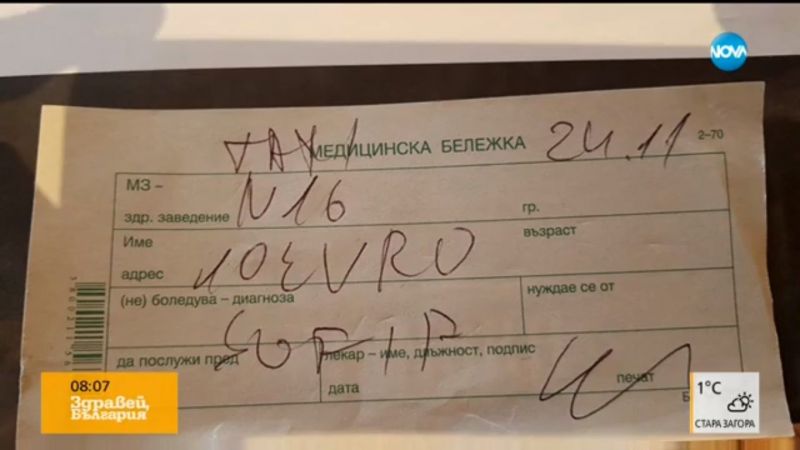 NOVA
TAXI МЕДИЦИНСКА БЕЛЕЖКА 24.11 2-70
МЗ –
здр. заведение N16 гр.
Име възраст
адрес 10 EVRO
(не) боледува – диагноза нуждае се от
да послужи пред лекар – име, длъжност, подпис
дата печат
08:07
Здравей, България
1°C
СТАРА ЗАГОРА